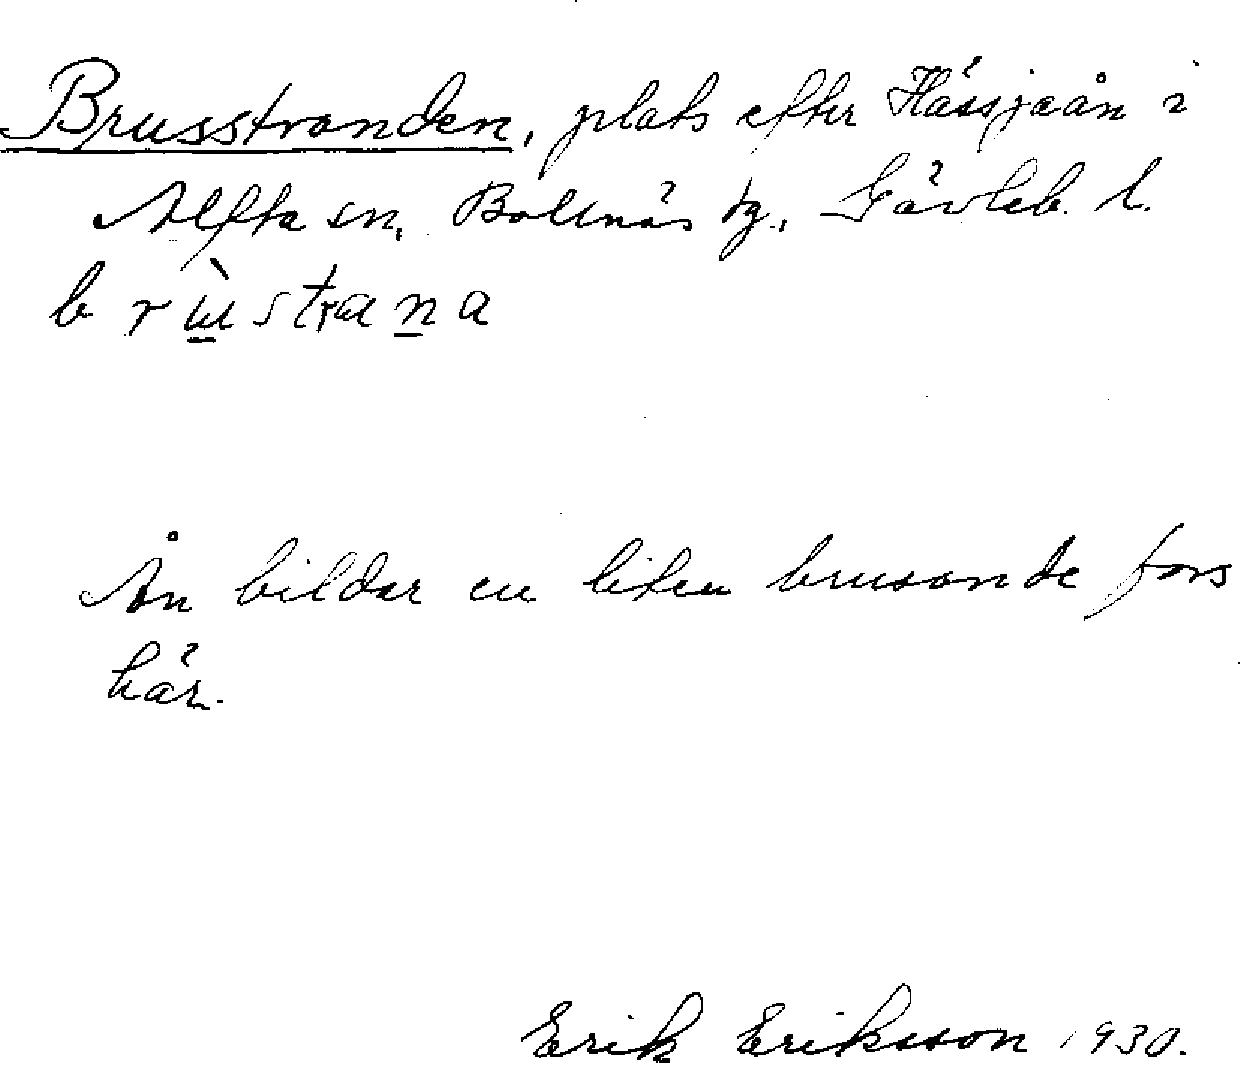 Brusstranden, plats efter Hässjaån i
Alfta sn, Bollnäs tg., Gävleb. l.
brùstrana
Ån bildar en liten brusande fors
här.
Erik Eriksson 1930.